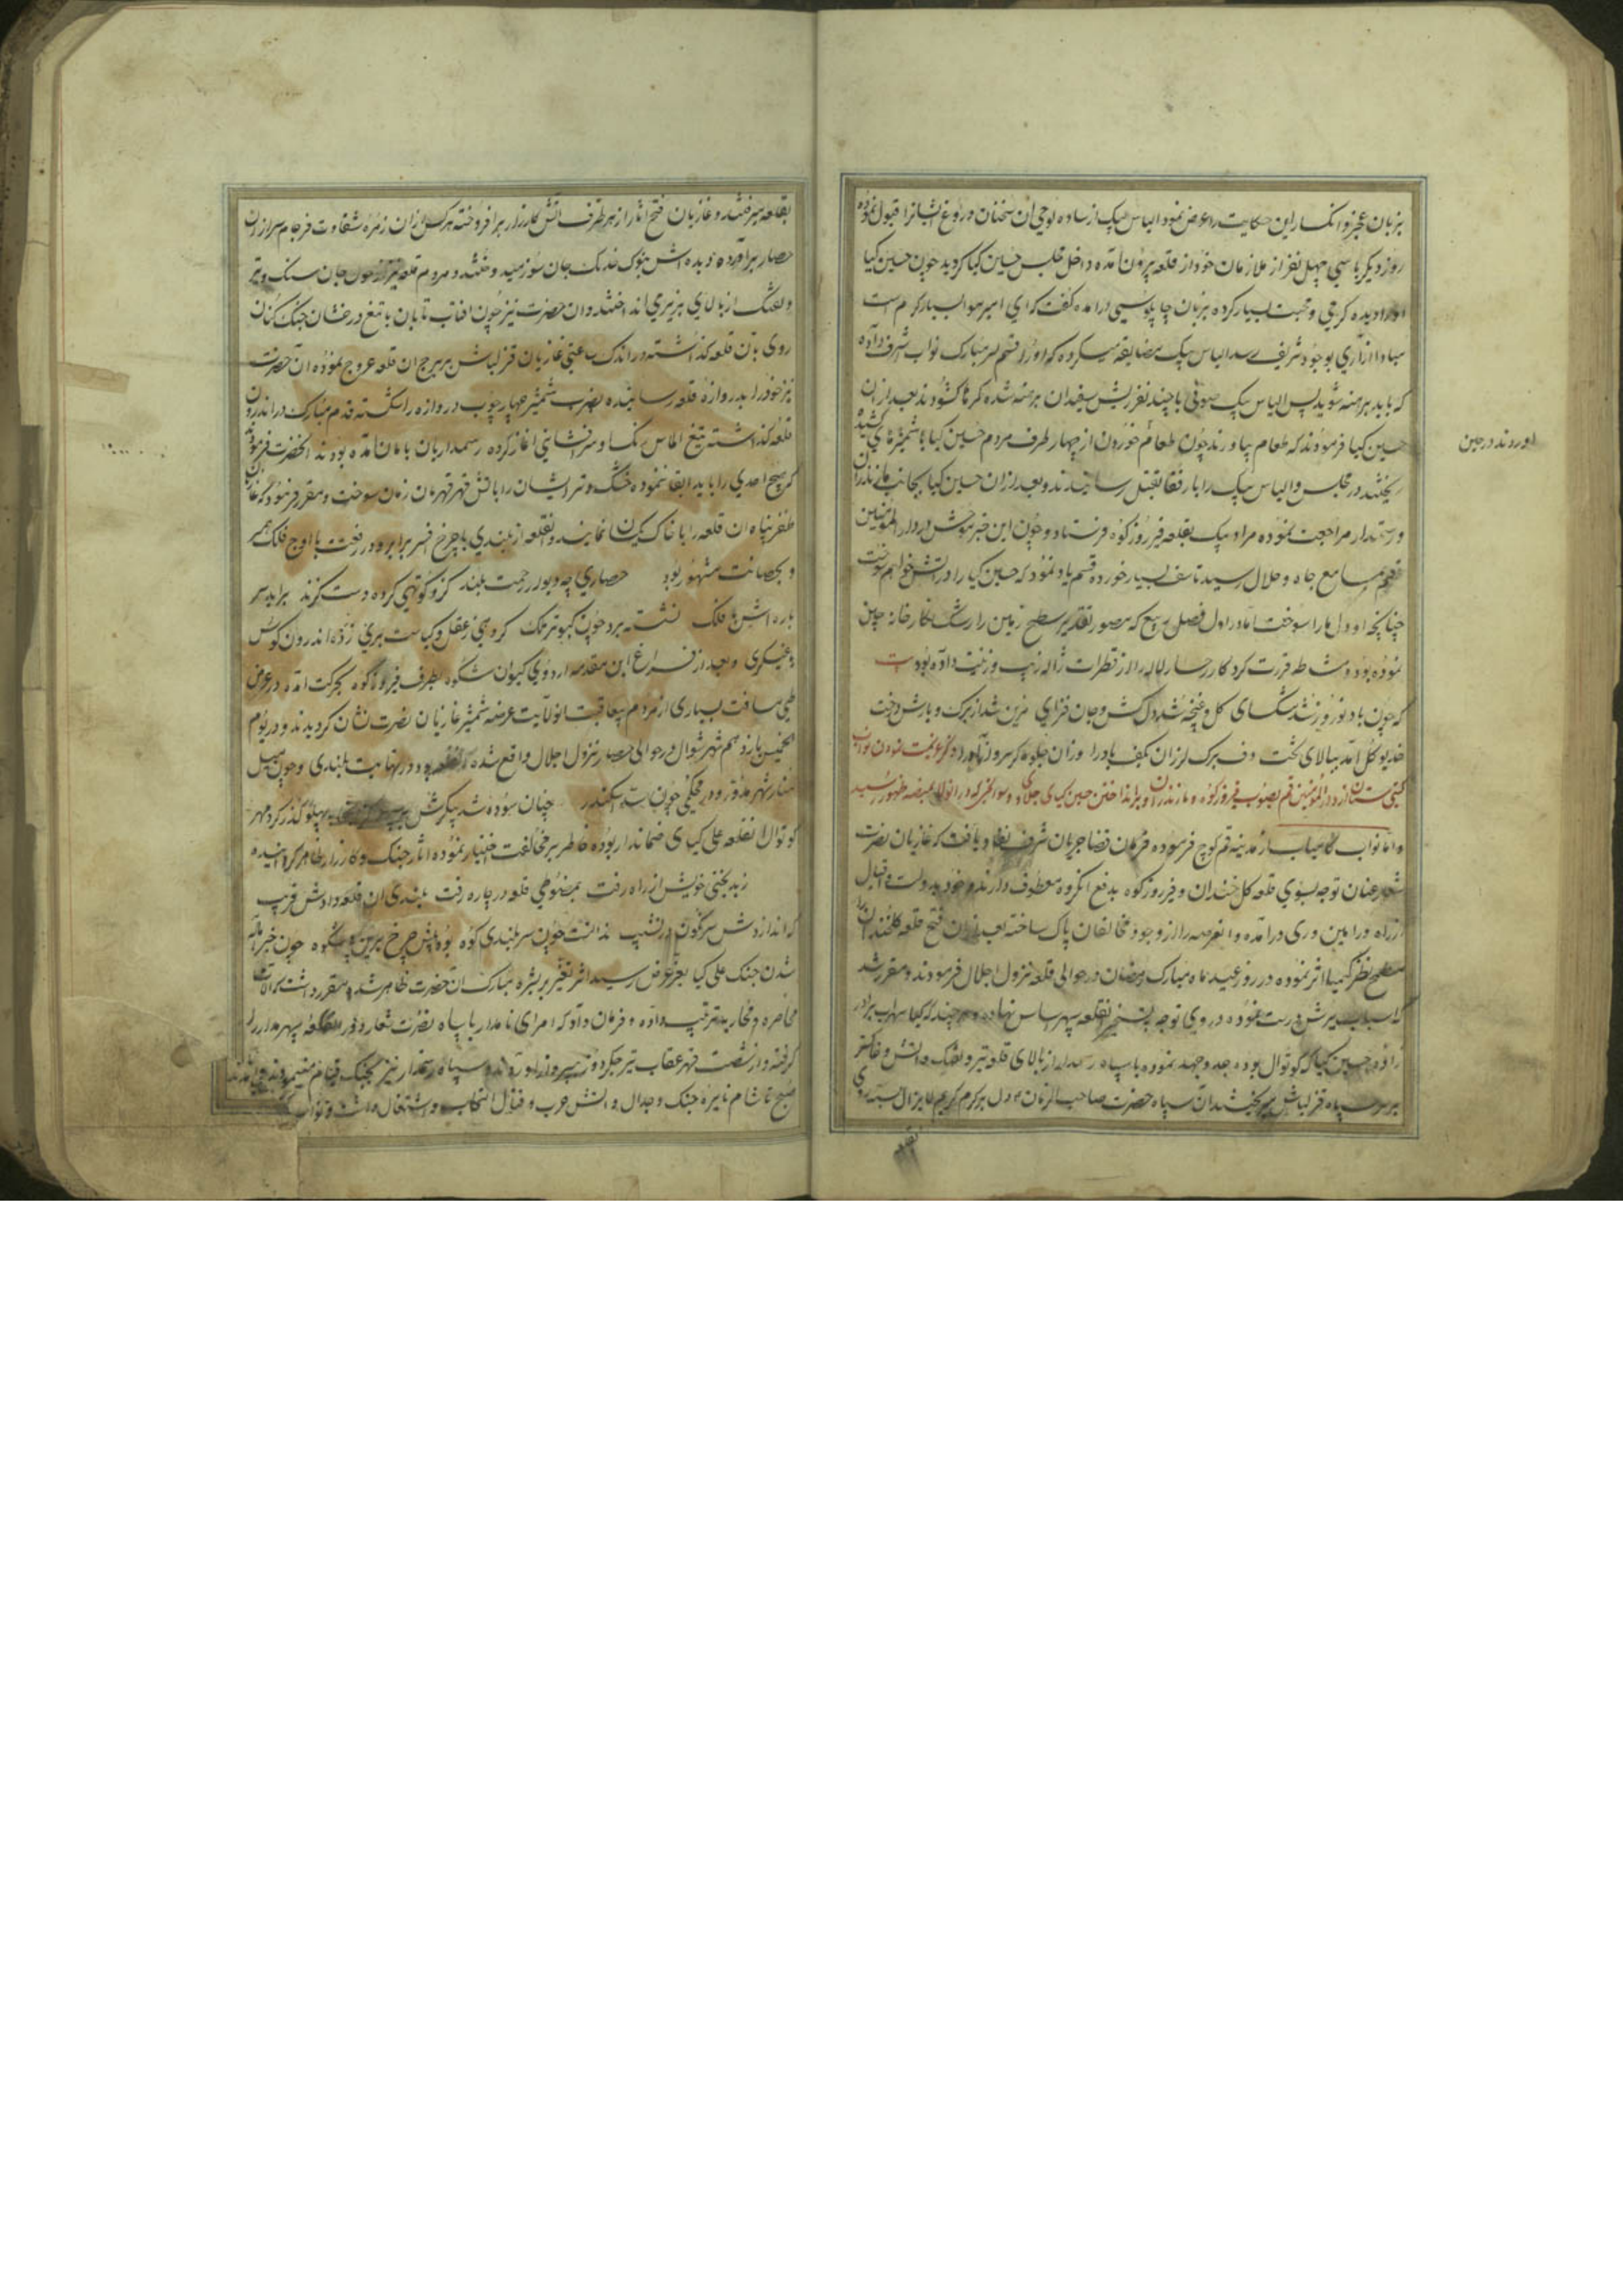 بزبان عجز و انکسار این حکایت را عرض نمود الیاس بیک از ساده لوحی آن سخنان دروغ ایشانرا قبول نموده
روز دیکر با سی چهل نفر از ملازمان خود از قلعه بیرون آمده داخل مجلس حسین کیا کردید چون حسین کیا
اورا دیده کرمی و محبت بسیار کرده بزبان چاپلوسی درآمده کفت که ای امیر هوا بسیار کرم است
مبادا ازاری بوجود شریف رسد الیاس بیک مضایقه میکرده که اورا قسم بسر مبارک نواب اشرف داده
که باید برهنه شوید پس الیاس بیک صوفی با چند نفر ریش سفیدان برهنه شده کمرها کشودند بعد از آن
حسین کیا فرمودند که طعام بیاورند چون طعام خوردن از چهار طرف مردم حسین کیا با شمشیرهای کشیده
ریختند در مجلس و الیاس بیک را با رفقا بقتل رسانیدند و بعد از آن حسین کیا بجانب مازندران
و رستمدار مراجعت نموده مراد بیک بقلعه فیروزکوه فرستاد و چون این خبر موحش در دار المؤمنین
قم بمسامع جاه و جلال رسید تاسف بسیار خورده قسم یاد نمود که حسین کیا را در آتش خواهم سوخت
چنانچه او دل ما را سوخت اما در اول فصل ربیع که مصور تقدیر سطح زمین را رشک نکارخانه چین
نموده بود و مشاطه قدرت کردکار رخسار لاله را از قطرات ژاله زیب و زینت داده بود بیت
که چون باد نوروز شد مشکسای کل و غنچه شد دلکش و جان فزای مزین شد از برک و بارش درخت
خدیو کل آمد ببالای تخت و ف برک لرزان بکف باد را وزان جلوه کر سرو آزاد را ذکر عزیمت نمودن نواب
کیتی ستان از دار المؤمنین قم بصوب فیروزکوه و مازندران و برانداختن حسین کیای جلاوی و سوانحی که در آنولا بمنصه ظهور رسید
و اما نواب کامیاب از مدینه قم کوچ فرموده فرمان قضا جریان شرف نفاذ یافت که غازیان نصرت
شعار عنان توجه بسوی قلعه کل خندان و فیروزکوه بدفع آنکروه معطوف دارند و خود بدولت و اقبال
از راه ورامین و ری درآمده و آنعرصه را از وجود مخالفان پاک ساخته بعد از آن فتح قلعه کلخندان را
مطمح نظر کیمیا اثر نموده در روز عید ماه مبارک رمضان در حوالی قلعه نزول اجلال فرمودند و مقرر شد
که اسباب یورش درست نموده در روی توجه بتسخیر آنقلعه سپهر اساس نهادند و هر چند که کیا سهراب برادر
زاده حسین کیا که کوتوال بود جد و جهد نموده با سپاه رستمدار از بالای قلعه تیر و تفنک و آتش و خاکستر
بر سر سپاه قزلباش میریختند آن سپاه حضرت صاحب الزمان دل بر کرم کریم لایزال بسته روی
بقلعه
اوروند در جین
بقلعه میرفتند و غازیان فتح آثار از هر طرف آتش کارزار برافروخته هر کس از آن زمره شقاوت فرجام سر از آن
حصار برآورده دیده اش بنوک خدنک جان سوز میدوختند و مردم قلعه نیز از هول جان سنک و تیر
و تفنک از بالای بزیر می انداختند و آن حضرت نیز چون افتاب تابان با تیغ درخشان جنک کنان
روی بآن قلعه گذاشته در اندک ساعتی غازیان قزلباش بر برج آن قلعه عروج نموده آن حضرت
نیز خود را بدروازه قلعه رسانیده بضرب شمشیر چهار چوب دروازه را شکسته قدم مبارک در اندرون
قلعه گذاشته بتیغ الماس رنک و سرفشانی آغاز کرده رستمداریان بامان آمده بودند انحضرت فرمودند
که هیچ احدی را نباید ابقا نموده خشک و تر ایشان را باتش قهر قهرمان زمان سوخت و مقرر فرمود که غازیان
ظفر پناه آن قلعه را با خاک یکسان نمایند و آنقلعه از بلندی با چرخ اخضر برابر و در رفعت با اوج فلک همسر
و بحصانت مشهور بود حصاری چه دیوار رحمت بلند کزو کوتهی کرده دست کزند برابر سر
باره اش با فلک نشسته برو چون کبوتر ملک کروهی ز عقل و کیاست بری زده اندرون کوس
یاغیکری و بعد از فراغ این مقدمه اردوی کیوان شکوه بطرف فیروزکوه بحرکت آمده در عرض
طی مسافت بسیاری از مردم بیعاقبت انولایت عرضه شمشیر غازیان نصرت نشان کردیدند و در یوم
الخمیس یازدهم شهر شوال در حوالی حصار نزول اجلال واقع شده بود و در نهایت بلندی و چون میل
منار شهره و در محکمی چون سد سکندر چنان سوده شد پیکرش بپهلو گذر کرد مهر
کوتوال آنقلعه علی کیای ضماندار بوده خاطر بر مخالفت اختیار نموده آثار جنک و کارزار ظاهر کردانیده
ز بدبختی خویش از راه رفت بمضبوطی قلعه در چاه رفت بلندی آن قلعه دادش فریب
که اندازدش سرنکون در نشیب ندانست چون سربلندی کوه بود پیش چرخ برین بیشکوه چون خبر آماده
شدن جنک علی کیا بعز عرض رسید اثر تغییر بر بشره مبارک آن حضرت ظاهر شد مقرر داشت که آلات
محاصره و محاربه ترتیب داده و فرمان داد که امرای نامدار با سپاه نصرت شعار دور آنقلعه سپهر مدار را
گرفته و از شصت قهر عقاب تیر جکردوز به پرواز درآوردند و سپاه رستمدار نیز بجنک قیام مینمودند و از
صبح تا شام نایره جنک و جدال و آتش حرب و قتال التهاب و اشتعال داشت و نواب